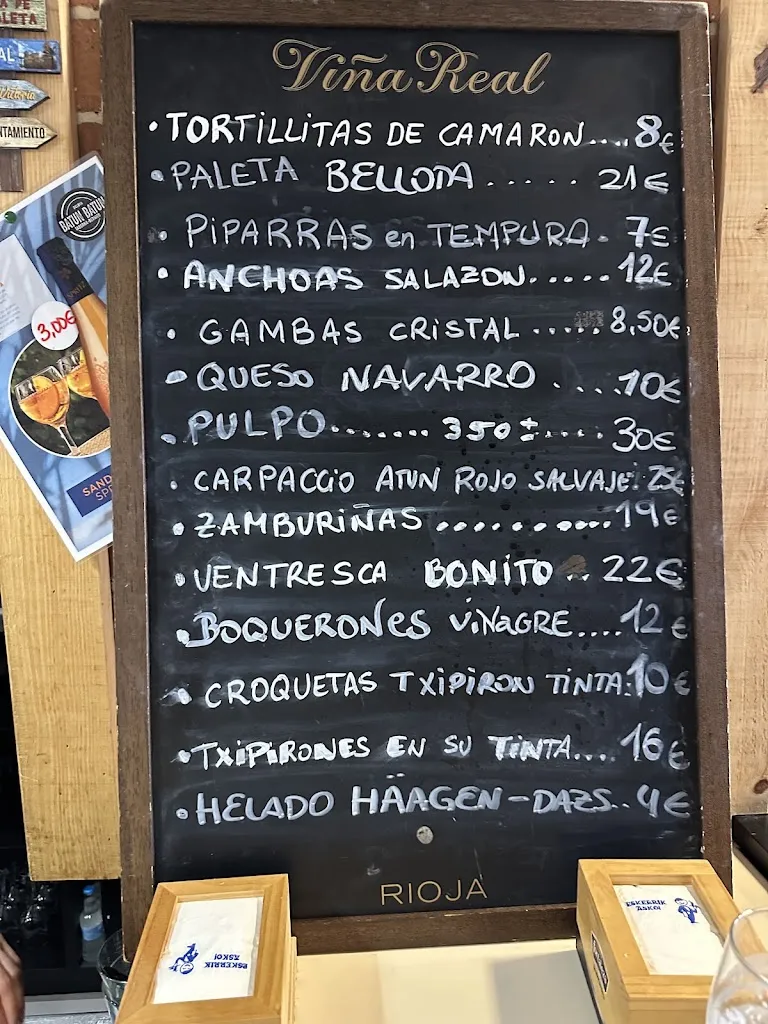 AL
Vitoria
NTAMIENTO
BATUN BATUN
3,00€
SAND
SP
Viña Real
• TORTILLITAS DE CAMARON.... 8€
• PALETA BELLOTA ...... 21€
• PIPARRAS en TEMPURA. 7€
• ANCHOAS SALAZON..... 12€
• GAMBAS CRISTAL ..... 8,50€
• QUESO NAVARRO .... 10€
• PULPO....... 350±.... 30€
• CARPACCIO ATUN ROJO SALVAJE. 25€
• ZAMBURIÑAS .......... 19€
• VENTRESCA BONITO .. 22€
• BOQUERONES VINAGRE.... 12€
• CROQUETAS TXIPIRON TINTA. 10€
• TXIPIRONES EN SU TINTA.... 16€
• HELADO HÄAGEN-DAZS.. 4€
RIOJA
ESKERRIK ASKO!
ESKERRIK ASKO!